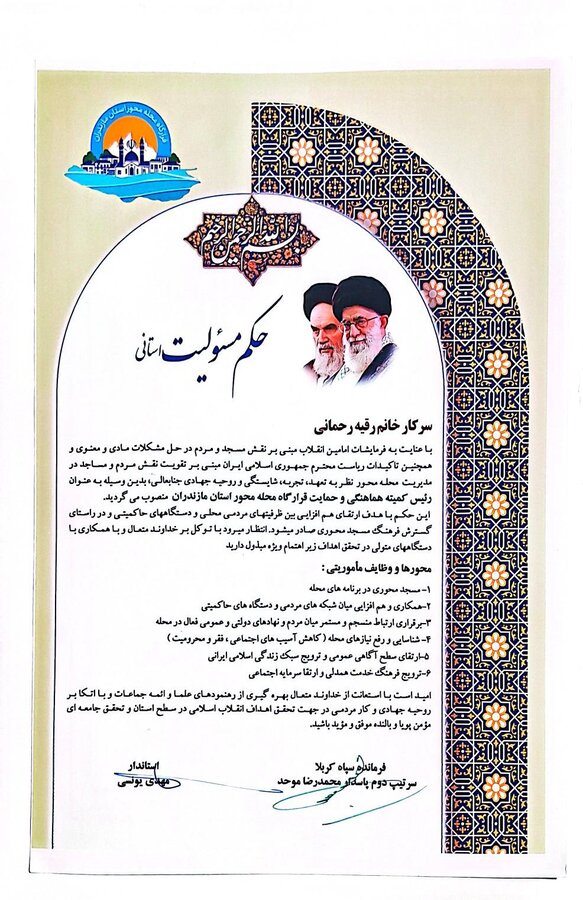 قرارگاه محله محور استان مازندران
بسم الله الرحمن الرحیم
حکم مسئولیت استانی
سرکار خانم رقیه رحمانی
با عنایت به فرمایشات امامین انقلاب مبنی بر نقش مسجد و مردم در حل مشکلات مادی و معنوی و
همچنین تاکیدات ریاست محترم جمهوری اسلامی ایران مبنی بر تقویت نقش مردم و مساجد در
مدیریت محله محور نظر به تعهد، تجربه، شایستگی و روحیه جهادی جنابعالی، بدین وسیله به عنوان
رئیس کمیته هماهنگی و حمایت قرارگاه محله محور استان مازندران منصوب می گردید.
این حکم با هدف ارتقای هم افزایی بین ظرفیتهای مردمی محلی و دستگاههای حاکمیتی و در راستای
گسترش فرهنگ مسجد محوری صادر میشود. انتظار میرود با توکل بر خداوند متعال و با همکاری با
دستگاههای متولی در تحقق اهداف زیر اهتمام ویژه مبذول دارید
محورها و وظایف مأموریتی :
۱- مسجد محوری در برنامه های محله
۲-همکاری و هم افزایی میان شبکه های مردمی و دستگاه های حاکمیتی
۳-برقراری ارتباط منسجم و مستمر میان مردم و نهادهای دولتی و عمومی فعال در محله
۴- شناسایی و رفع نیازهای محله ( کاهش آسیب های اجتماعی ، فقر و محرومیت )
۵-ارتقای سطح آگاهی عمومی و ترویج سبک زندگی اسلامی ایرانی
۶-ترویج فرهنگ خدمت همدلی و ارتقا سرمایه اجتماعی
امید است با استعانت از خداوند متعال بهره گیری از رهنمودهای علما و ائمه جماعات و با اتکا بر
روحیه جهادی و کار مردمی در جهت تحقق اهداف انقلاب اسلامی در سطح استان و تحقق جامعه ای
مؤمن پویا و بالنده موفق و مؤید باشید.
فرمانده سپاه کربلا
سرتیپ دوم پاسدار محمدرضا موحد
استاندار
مهدی یونسی